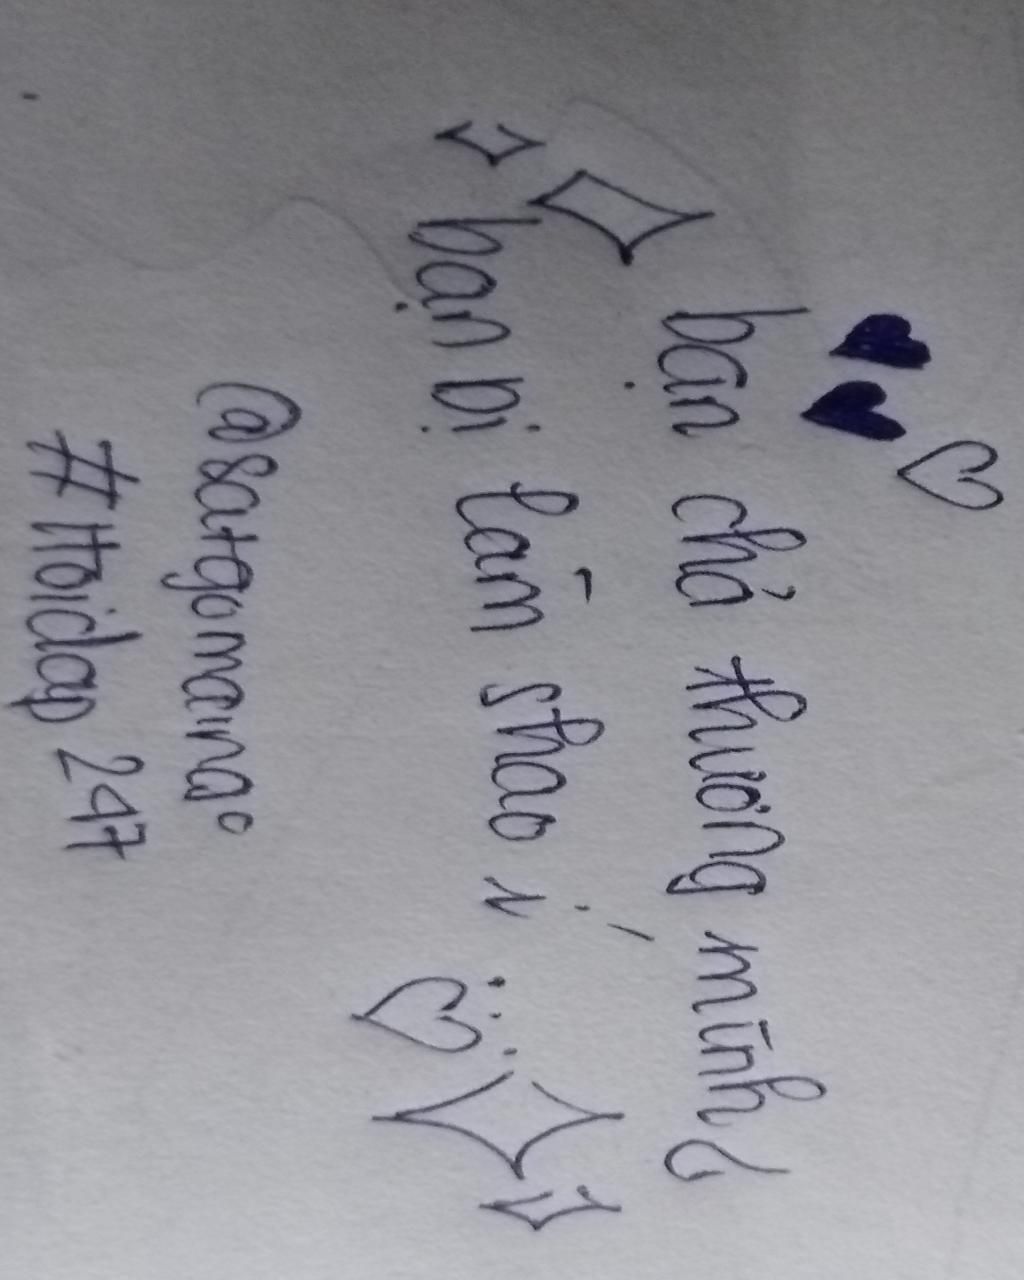 bạn chả thương mình¿
bạn bị làm shao í...
@satgamaina
#Hoidap247